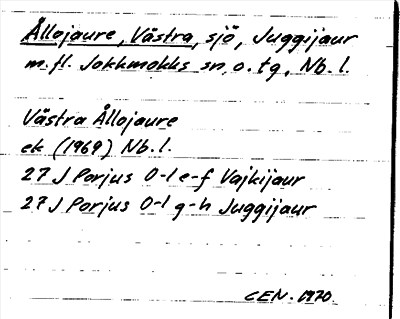 Ållojaure, Västra, sjö, Juggijaur
m.fl. Jokkmokks sn, o. tg, Nb. l.
Västra Ållojaure
ek (1969) Nb. l.
27 J Porjus 0-1 e-f Vajkijaur
27 J Porjus 0-1 g-h Juggijaur
CEN. 1970